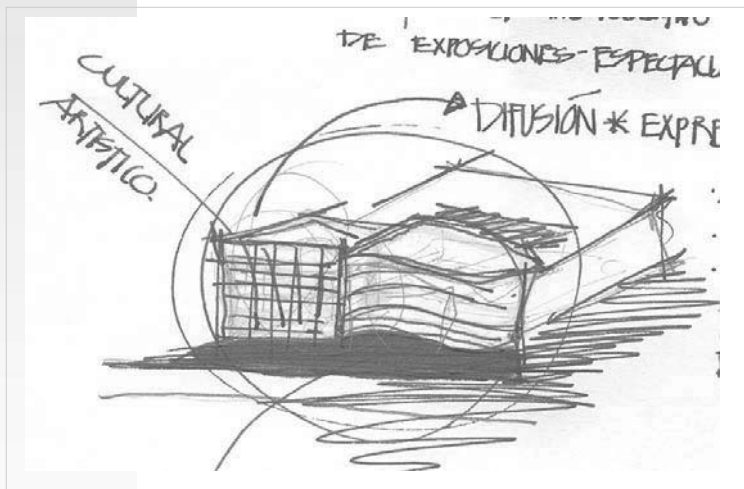 DE EXPOSICIONES-ESPECTACU
DIFUSIÓN * EXPRE
CULTURAL
ARTÍSTICO.